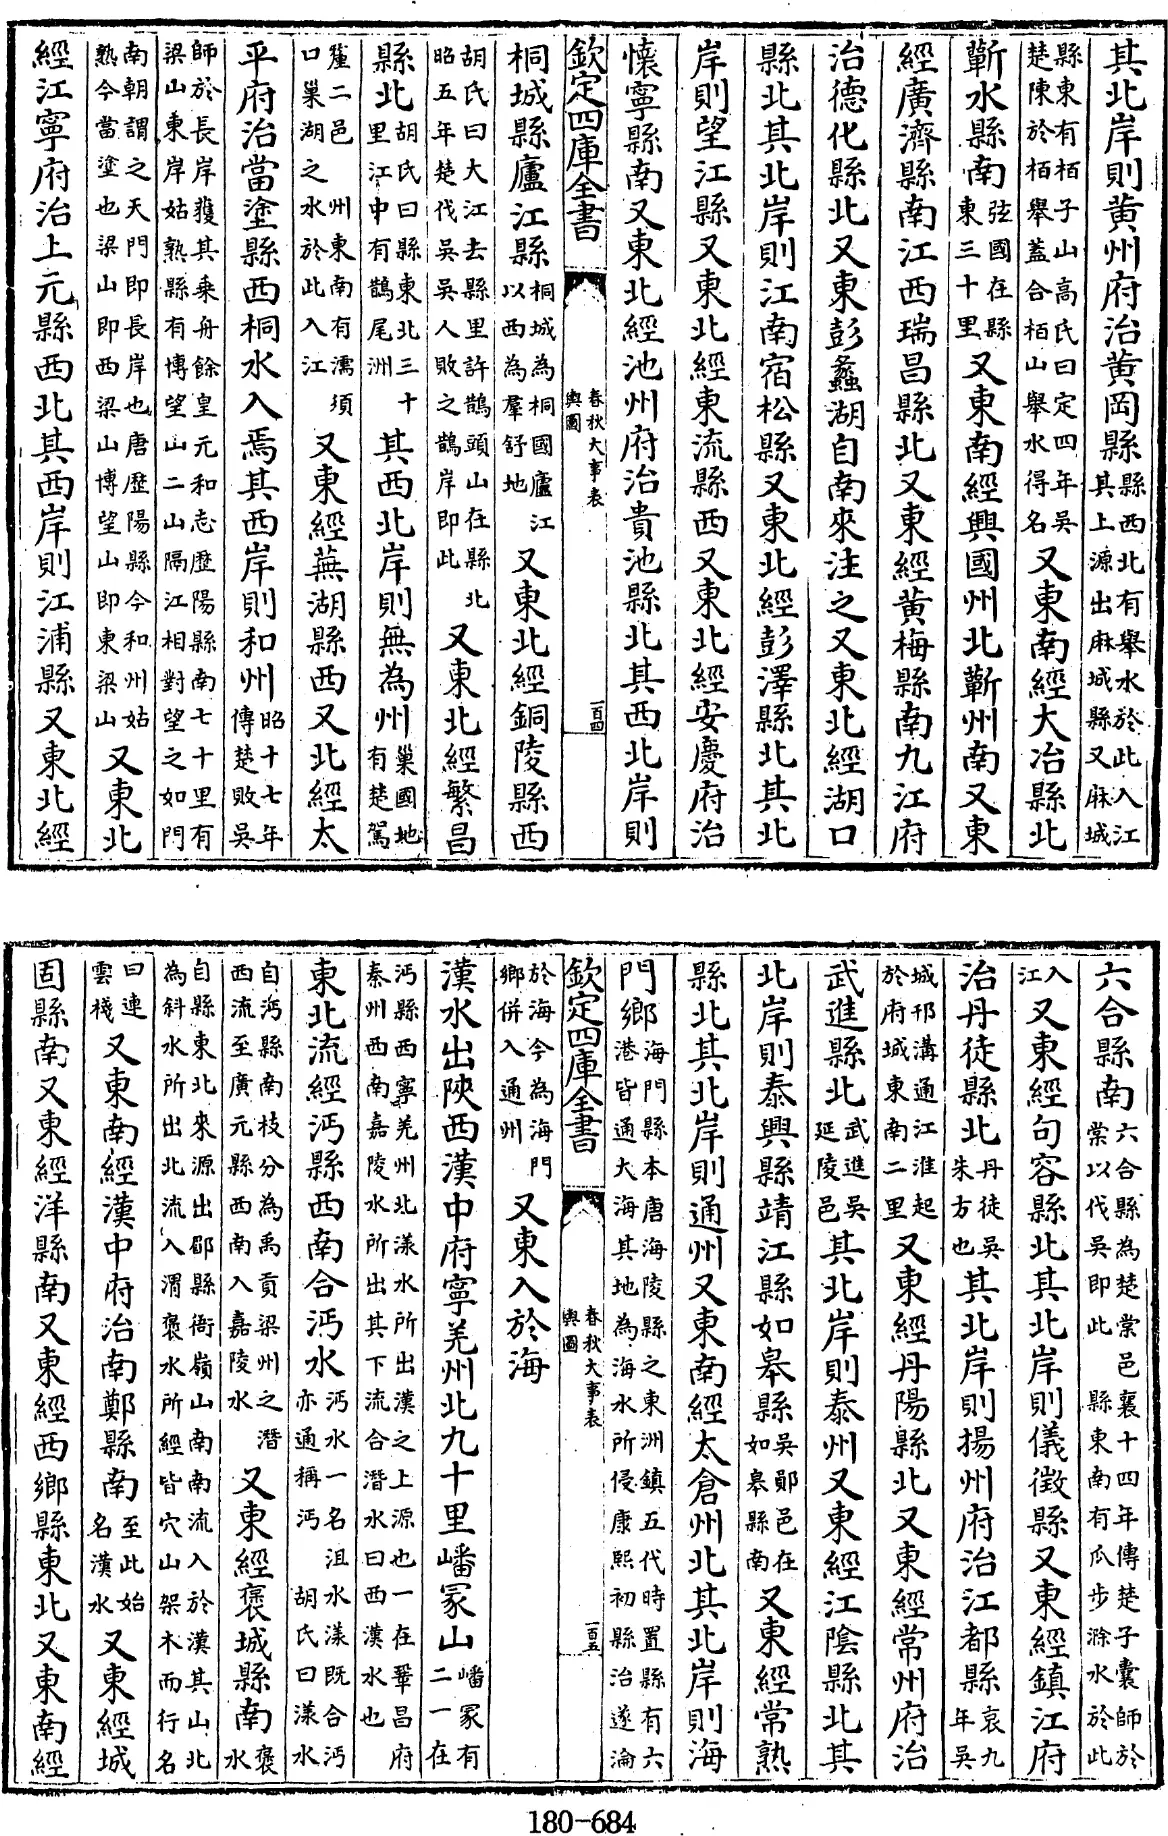 其北岸則黃州府治黃岡縣縣西北有舉水於此入江其上源出麻城縣又麻城
縣東有栢子山高氏曰定四年吳楚陳於栢舉蓋合栢山舉水得名又東南經大冶縣北
蘄水縣南弦國在縣東三十里又東南經興國州北蘄州南又東
經廣濟縣南江西瑞昌縣北又東經黃梅縣南九江府
治德化縣北又東彭蠡湖自南來注之又東北經湖口
縣北其北岸則江南宿松縣又東北經彭澤縣北其北
岸則望江縣又東北經東流縣西又東北經安慶府治
懷寧縣南又東北經池州府治貴池縣北其西北岸則
欽定四庫全書
春秋大事表
輿圖
一百四
桐城縣廬江縣桐城為桐國廬江以西為羣舒地又東北經銅陵縣西
胡氏曰大江去縣里許鵲頭山在縣北昭五年楚伐吳吳人敗之鵲岸即此又東北經繁昌
縣北胡氏曰縣東北三十里江中有鵲尾洲其西北岸則無為州巢國地有楚駕
釐二邑州東南有濡須口巢湖之水於此入江又東經蕪湖縣西又北經太
平府治當塗縣西桐水入焉其西岸則和州昭十七年傳楚敗吳
師於長岸獲其乘舟餘皇元和志歷陽縣南七十里有梁山東岸姑熟縣有博望山二山隔江相對望之如門
南朝謂之天門即長岸也唐歷陽縣今和州姑熟今當塗也梁山即西梁山博望山即東梁山又東北
經江寧府治上元縣西北其西岸則江浦縣又東北經
六合縣南六合縣為楚棠邑襄十四年傳楚子囊師於棠以伐吳即此縣東南有瓜步滁水於此
入江又東經句容縣北其北岸則儀徵縣又東經鎮江府
治丹徒縣北丹徒吳朱方也其北岸則揚州府治江都縣哀九年吳
城邗溝通江淮起於府城東南二里又東經丹陽縣北又東經常州府治
武進縣北武進吳延陵邑其北岸則泰州又東經江陰縣北其
北岸則泰興縣靖江縣如皋縣吳鄖邑在如皋縣南又東經常熟
縣北其北岸則通州又東南經太倉州北其北岸則海
門鄉海門縣本唐海陵縣之東洲鎮五代時置縣有六港皆通大海其地為海水所侵康熙初縣治遂淪
欽定四庫全書
春秋大事表
輿圖
一百五
於海今為海門鄉併入通州又東入於海
漢水出陝西漢中府寧羌州北九十里嶓冢山嶓冢有二一在
沔縣西寧羌州北漾水所出漢之上源也一在鞏昌府秦州西南嘉陵水所出其下流合潛水曰西漢水也
東北流經沔縣西南合沔水沔水一名沮水漾既合沔亦通稱沔胡氏曰漾水
自沔縣南枝分為禹貢梁州之潛西流至廣元縣西南入嘉陵水又東經褒城縣南褒水
自縣東北來源出郿縣衙嶺山南流入於漢其山北為斜水所出北流入渭褒水所經皆穴山架木而行名
曰連雲棧又東南經漢中府治南鄭縣南至此始名漢水又東經城
固縣南又東經洋縣南又東經西鄉縣東北又東南經
180-684